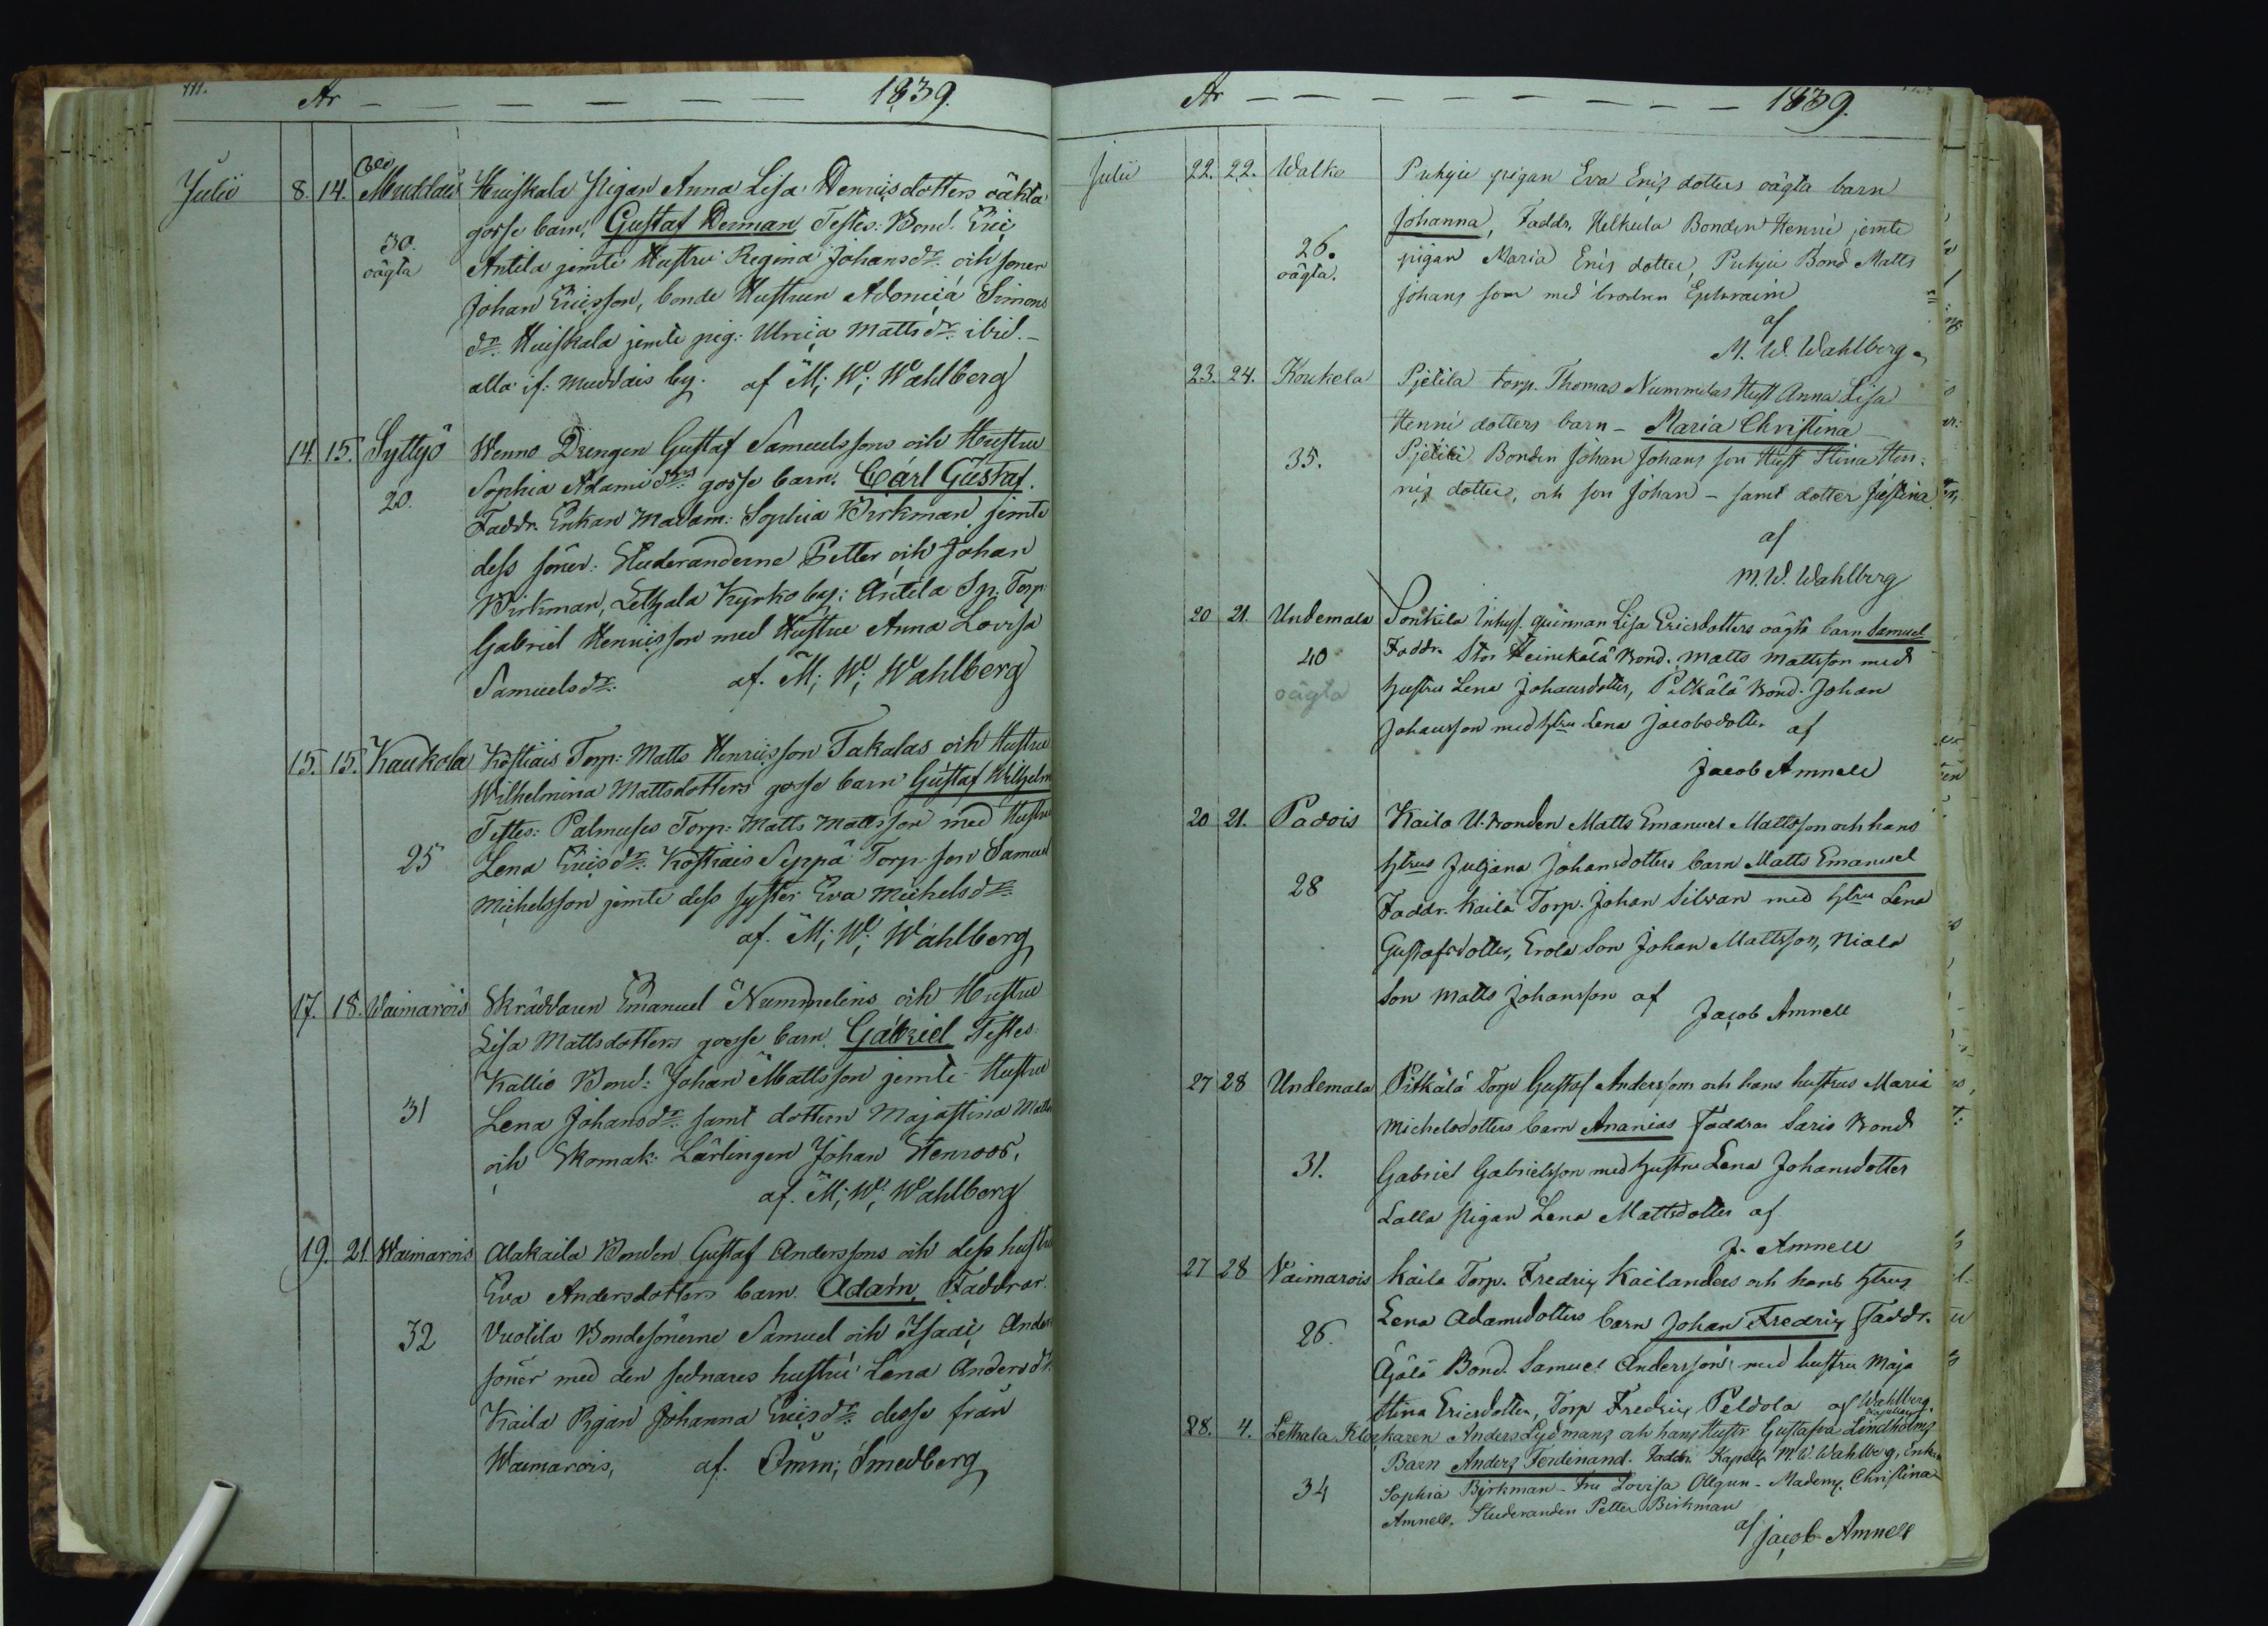 År 1839.
Julii 8. 14. Muddais Huiskala Pigan Anna Lisa Henricsdotters oäkta
30. gosse barn, Gustaf Herman Testes: Bond. Eric
oägta Antila jemte Hustru Regina Johansdr. och sonen
Johan Ericsson, bonde Hustrun Adonica Simons
dr. Huiskala jemte pig: Ulrica Mattsdr. ibid. –
alla if: Muddais by. af M; W; Wahlberg
14. 15. Syttyö Wenno Drengen Gustaf Samuelssons och Hustru
20. Sophia Adamidrs: gosse barn. Carl Gustaf.
Faddr. Enkan Madam: Sophia Birkman jemte
dess söner: Studeranderne Petter och Johan
Birkman, Lethala Kyrko by; Antila Sp. Torp:
Gabriel Henricsson med Hustru Anna Lovisa
Samuelsdr. af. M; W; Wahlberg
15. 15. Kaukola Kostiais Torp: Matts Henricsson Takalas och Hustru
Wilhelmina Mattsdotters gosse barn Gustaf Wilhelm
Testes: Palmuses Torp: Matts Mattsson med Hustru
25 Lena Ericsdr: Kostiais Seppä Torp. son Samuel
Michelsson jemte dess syster Eva Michelsdr.
af. M; W; Wahlberg
17. 18. Waimarois Skräddaren Emanuel Nummelins och Hustru
Lisa Mattsdotters gosse barn. Gabriel Testes:
Kallio Bond: Johan Mattsson jemte Hustru
31 Lena Johansdr: samt dottern Majastina Matts
och Skomak: Lärlingen Johan Henroos,
af. M; W; Wahlberg
19. 21. Waimarois Alakaila Bonden Gustaf Anderssons och dess hustru
Eva Andersdotters barn. Adam, Faddrar.
32 Vuolila Bondesönerne Samuel och Isaac Anders
söner med den sednares hustru Lena Andersdr.
Kaila Pigan Johanna Ericsdr. desse från
Waimarois, af. Smedberg
År 1839.
Julii 22. 22. Walko Puhju pigan Eva Erics dotters oägta barn
Johanna, Faddr. Helkula Bonden Henric jemte
26. pigan Maria Erics dotter, Puhju Bond Matts
oägta. Johans son med brodren Ephraim
af
M. W. Wahlberg
23. 24. Koukela Pjetila torp. Thomas Nummilas Hust Anna Lisa
Henric dotters barn – Maria Christina –
35. Pjetila Bonden Johan Johans son Hust Stina Hen-
rics dotter, och son Johan – samt dotter Justina
af
M. W. Wahlberg
20 21. Undemala Sonkila Inhys. quinnan Lisa Ericsdotters oägta barn Samuel
40 Faddr. Stor Heinikälä Bond. Matts Mattsson med
oägta hustru Lena Johansdotter, Pitkälä Bond. Johan
Johansson med hstru Lena Jacobsdotter af
Jacob Amnell
20 21. Padois Kaila U. Bonden Matts Emanuel Mattsson och hans
hstrus Juljana Johansdotters barn Matts Emanuel
28 Faddr. Kaila Torp. Johan Silvan med hstru Lena
Gustafsdotter, Erola Son Johan Mattsson, Niala
Son Matts Johansson af
Jacob Amnell
27 28 Undemala Pitkälä Torp Gustaf Anderssons och hans hustrus Maria
Michelsdotters barn Ananias Faddrar Saris Bond
31. Gabriel Gabrielsson med hustru Lena Johansdotter
Lalla pigan Lena Mattsdotter af
J. Amnell
27 28 Vaimarois Kaila Torp. Fredric Kailanders och hans hstrus
26. Lena Adamsdotters barn Johan Fredric Faddr.
Äjälä Bond. Samuel Andersson med hustru Maja
Stina Ericsdotter, Torp Fredric Peldola af Wahlberg.
Kapellan
28. 4. Lethala Klockaren Anders Lydmans och hans Hustr Gustafva Lindholms
Barn Anders Ferdinand. Faddr. Kapell. M. W. Wahlberg, Enkan
34 Sophia Birkman – Fru Lovisa Allgun – Madems. Christina
Amnell. Studeranden Petter Birkman
af Jacob Amnell